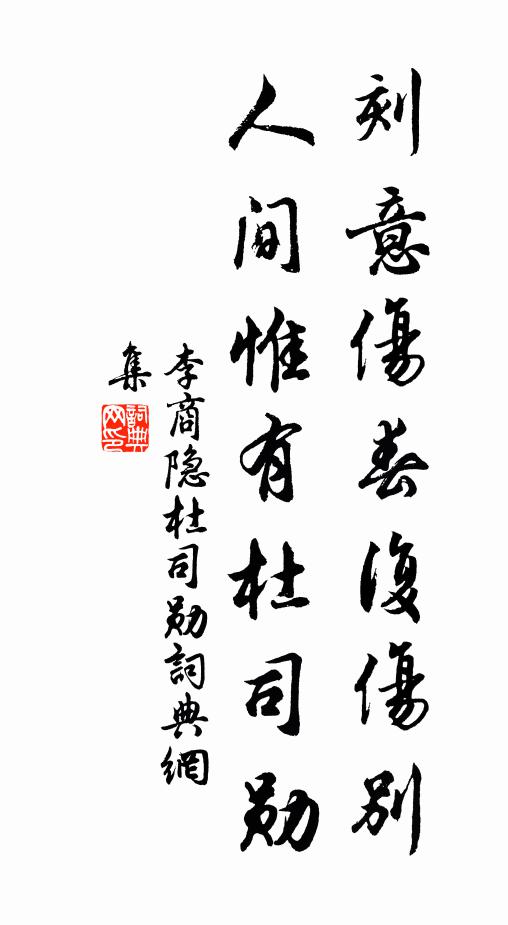 刻意傷春復傷別
人间惟有杜司勋
李商隐杜司勋詞典網
集
詞典网印